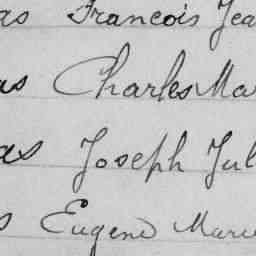 as François Jea
as Charles Ma
as Joseph Jul
s Eugene Marie